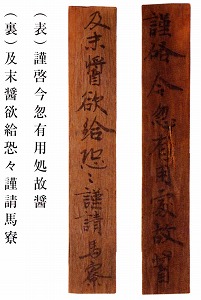 謹啓今忽有用処故醤
及末醤欲給恐々謹請馬寮
（表）謹啓今忽有用処故醤
（裏）及末醤欲給恐々謹請馬寮